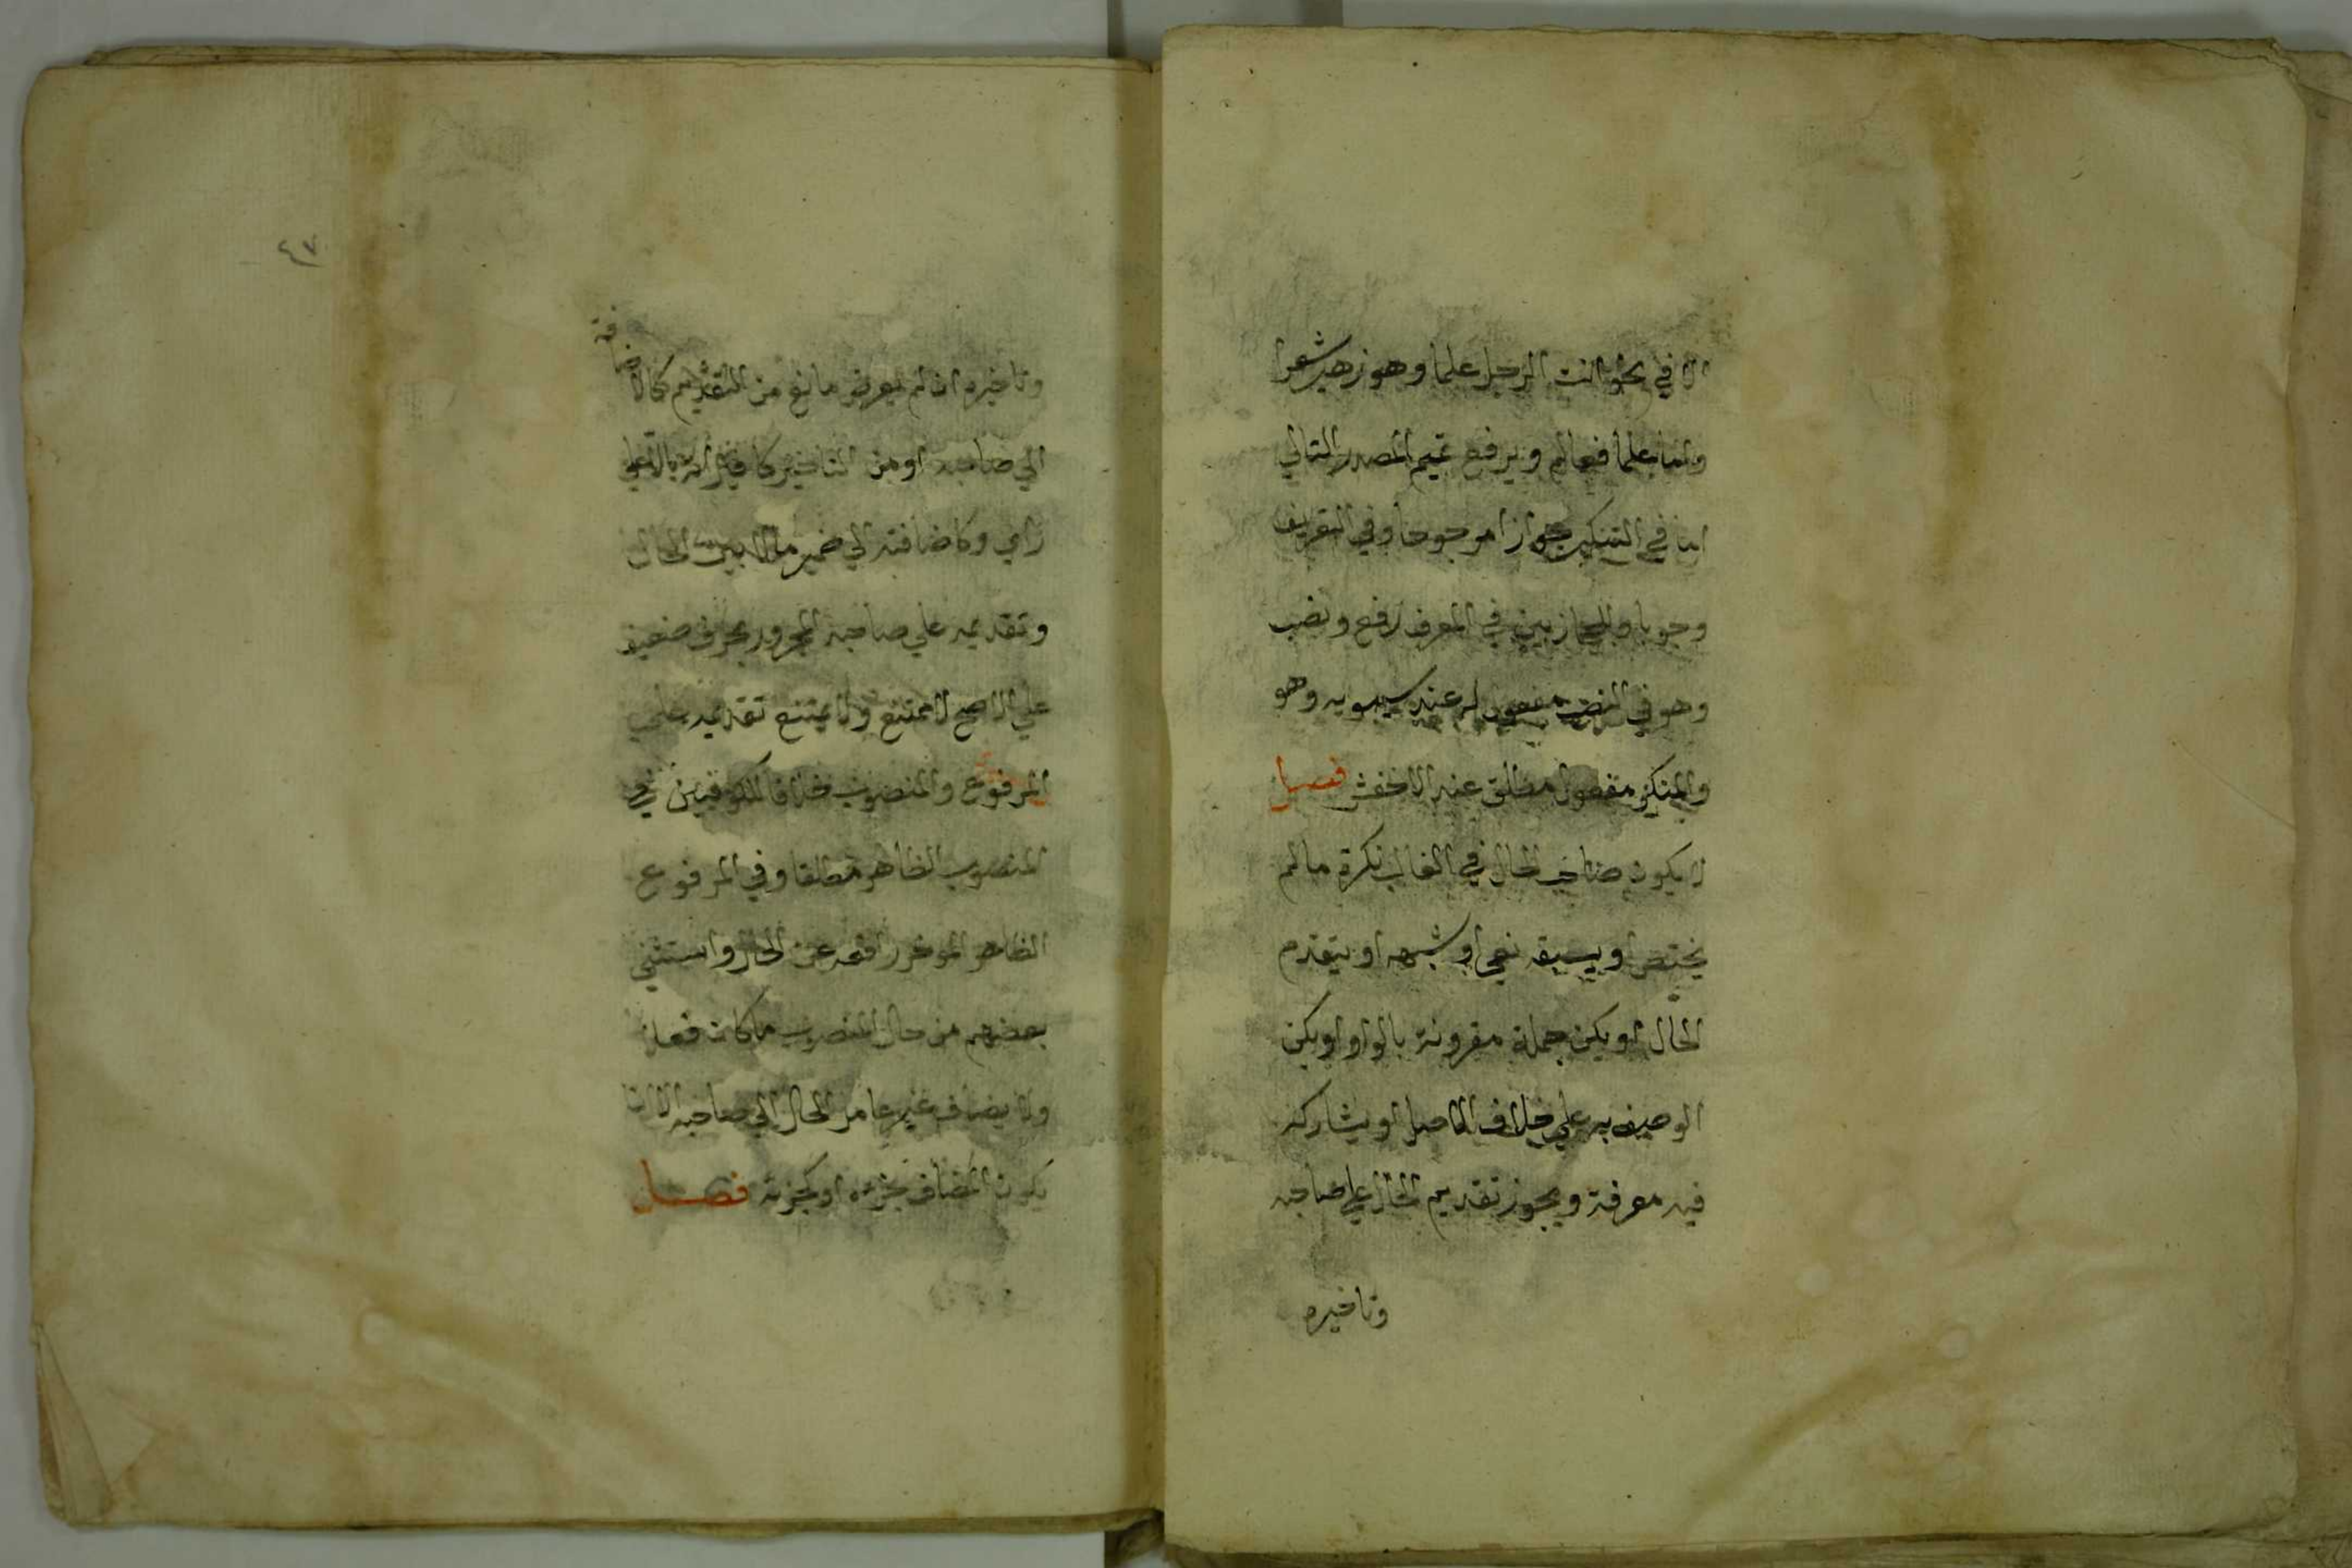 الا في نحو انت الرجل علما وهو زهير شعرا
واما علما فعالم ويرفع تميم المصدر التالي
اما في التنكير جوازا مرجوحا وفي التعريف
وجوبا وللحجازيين في المعرف رفع ونصب
وهو في النصب مفعول له عند سيبويه وهو
والمنكر مفعول مطلق عند الاخفش فصل
لا يكون صاحب الحال في الغالب نكرة ما لم
يختص او يسبقه نفي او شبهه او يتقدم
الحال او يكن جملة مقرونة بالواو او يكن
الوصف به علي خلاف الاصل او يشاركه
فيه معرفة ويجوز تقديم الحال علي صاحبه
وتاخيره
٤٧
وتاخيره ان لم يعرض مانع من التقديم كالاضافة
الي صاحبه او من التاخير كاقترانه بالا علي
راي وكاضافته الي ضمير ما لابس الحال
وتقديمه علي صاحبه المجرور بحرف ضعيف
علي الاصح لا ممتنع ولا يمتنع تقديمه علي
المرفوع والمنصوب خلافا للكوفيين في
المنصوب الظاهر مطلقا وفي المرفوع
الظاهر الموخر رافعه عن الحال واستثني
بعضهم من حال المنصوب ما كان فعلا
ولا يضاف غير عامل الحال الي صاحبه الا ان
يكون المضاف جزءه او كجزئه فصل